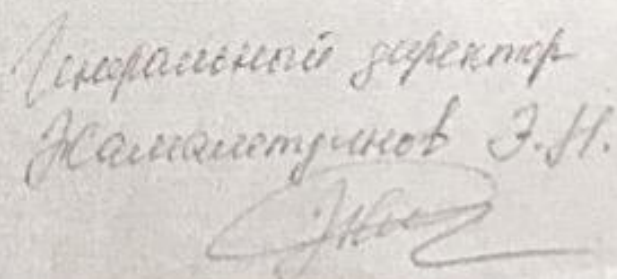 Генеральный директор
Жамалетдинов Э.Н.